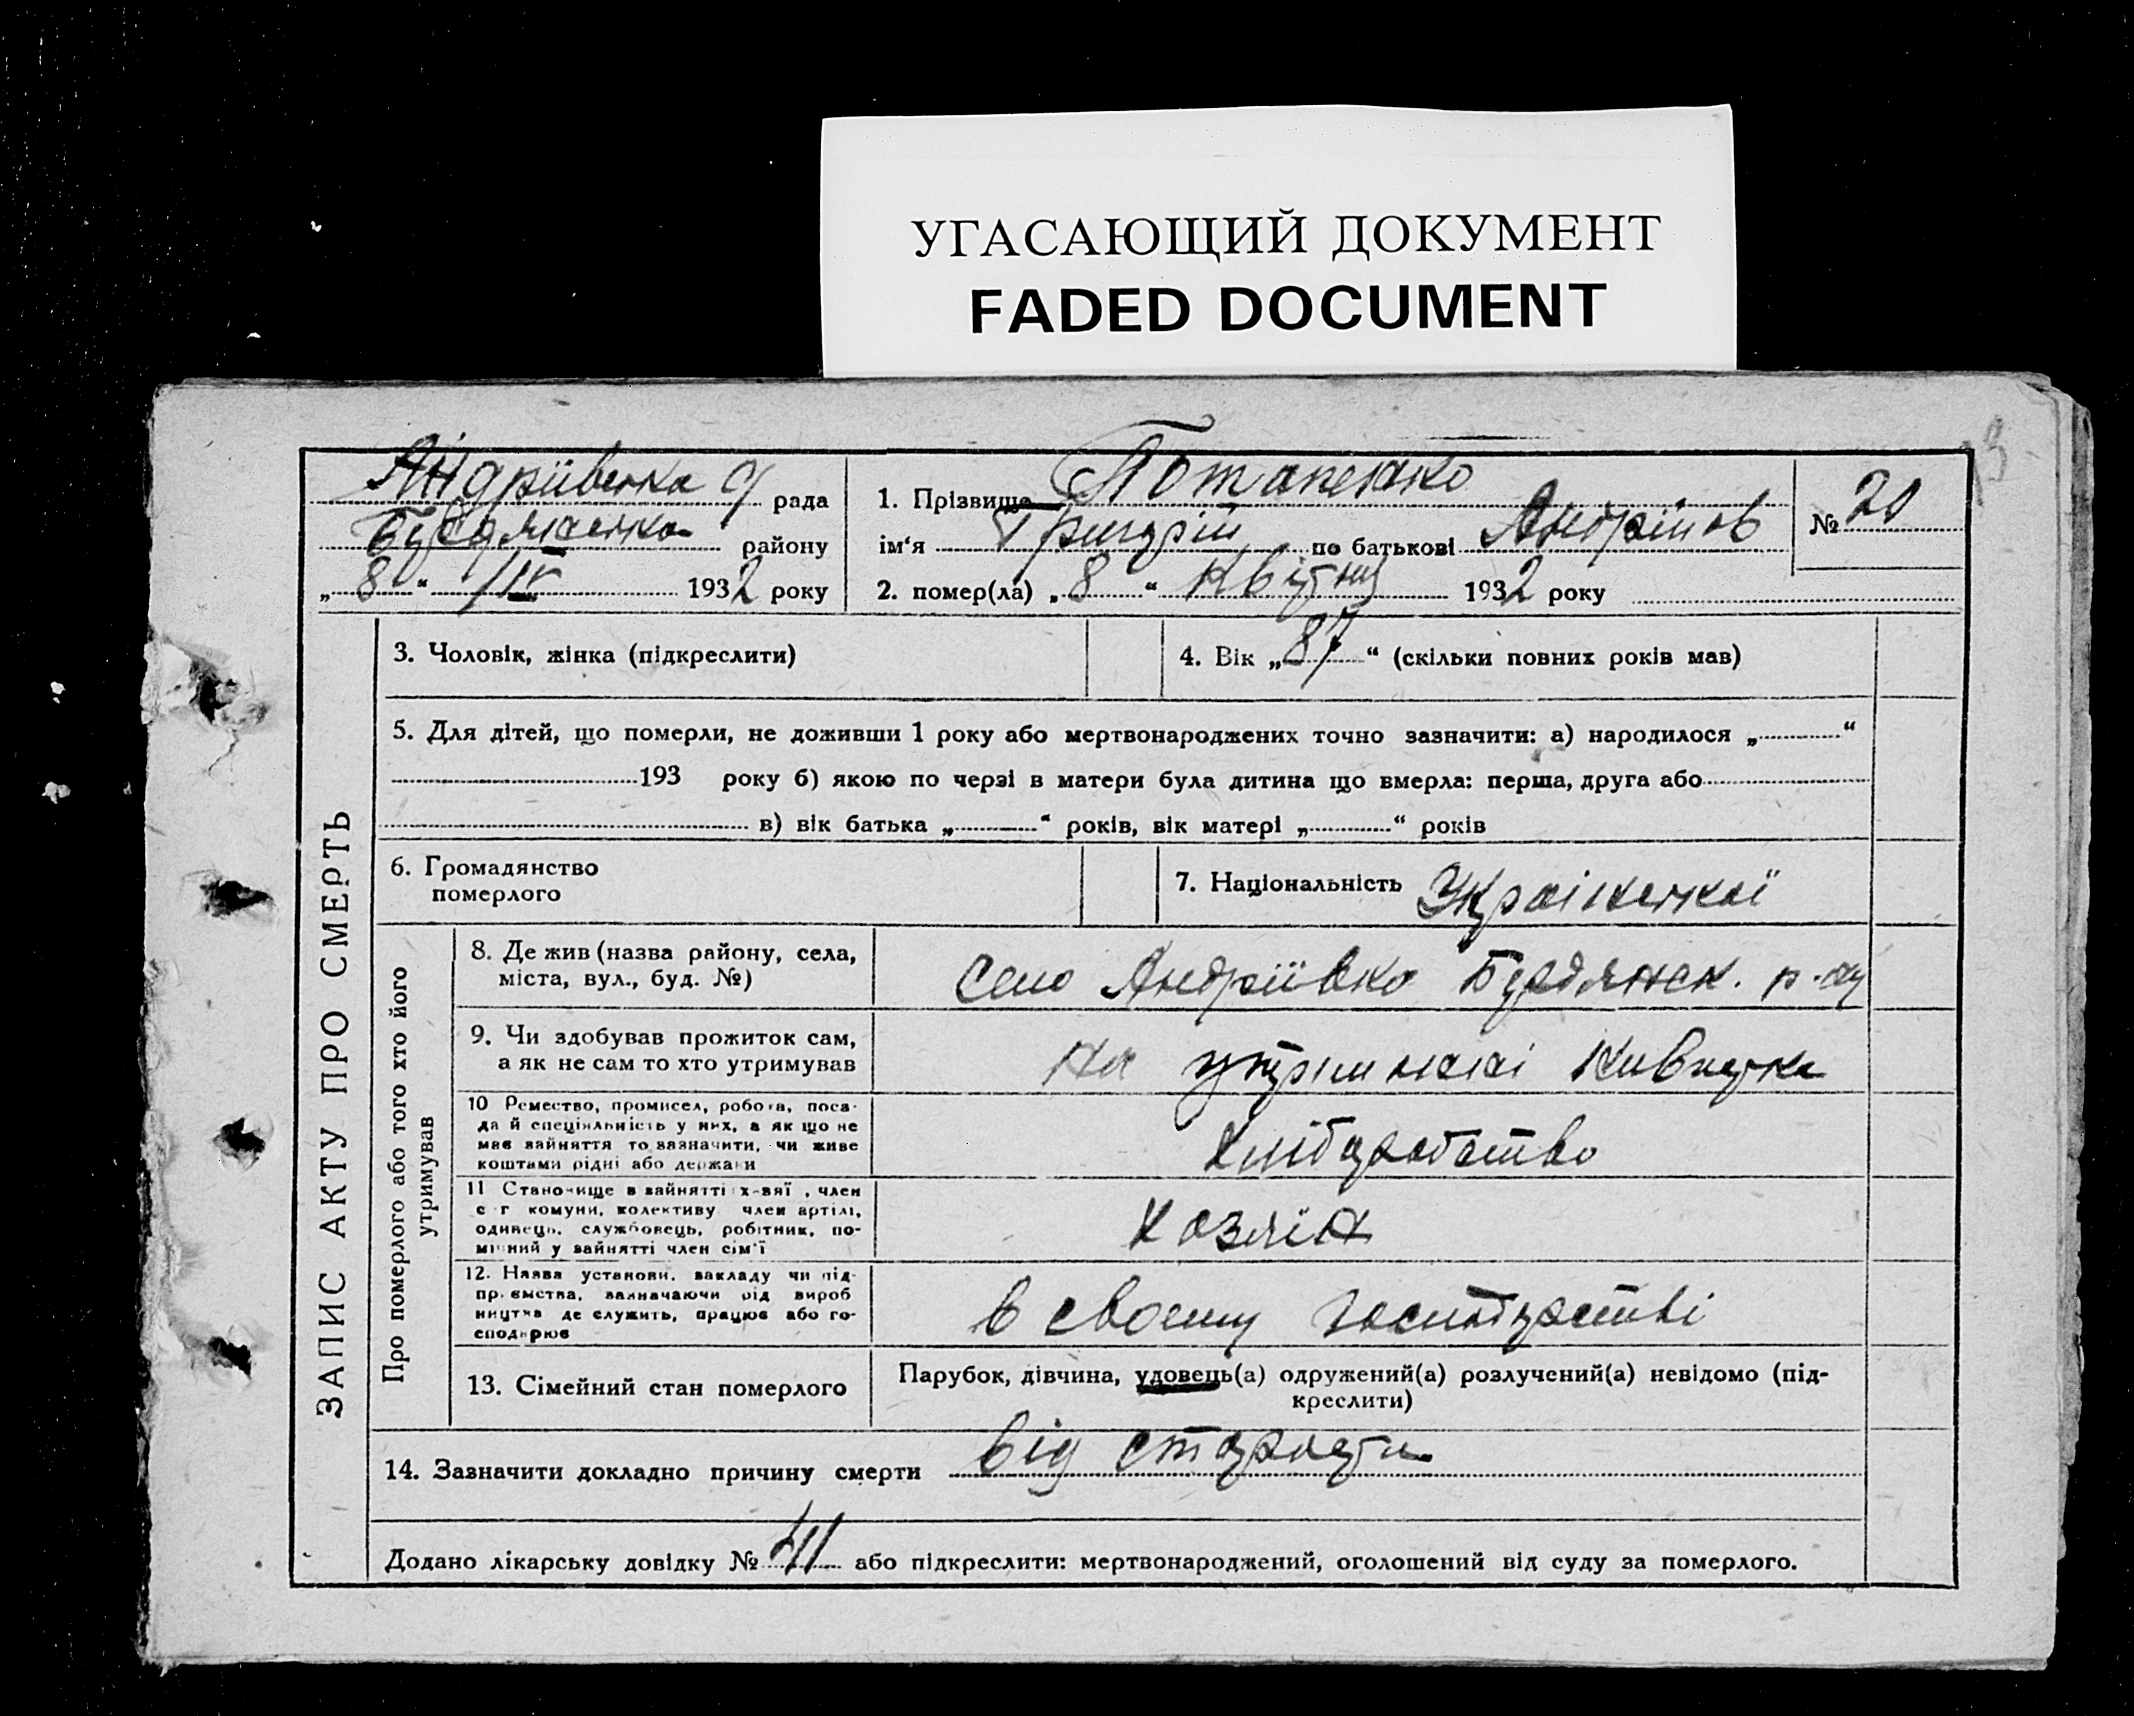 УГАСАЮЩИЙ ДОКУМЕНТ
FADED DOCUMENT
ЗАПИС АКТУ ПРО СМЕРТЬ
Андріївська с/ рада
Бердянська району
„ 8 “ IV 1932 року
1. Прізвище Потапенко
ім‘я Григорій по батькові Андріїов
№ 20
2. помер(ла) „ 8 “ Квітня 1932 року
3. Чоловік, жінка (підкреслити)
4. Вік „ 87 “ (скільки повних років мав)
5. Для дітей, що померли, не доживши 1 року або мертвонароджених точно зазначити: а) народилося „ “
193 року б) якою по черзі в матери була дитина що вмерла: перша, друга або
в) вік батька „ “ років, вік матері „ “ років
6. Громадянство
померлого
7. Національність Української
Про померлого або того хто його
утримував
8. Де жив (назва району, села,
міста, вул., буд. №)
село Андріївка Бердянск. р-ну
9. Чи здобував прожиток сам,
а як не сам то хто утримував
на утриманні
10 Ремество, промисел, робота, поса-
да й спеціяльність у них, а як що не
має зайняття то зазначити, чи живе
коштами рідні або держави
Хліборобство
11 Становище в зайнятті х-вяї , член
с-г комуни, колективу член артілі,
одинець, службовець, робітник, по-
мічний у зайнятті член сім‘ї
Хозяїн
12. Назва установи, закладу чи під-
приємства, зазначаючи рід вироб
ництва де служить, працює або го-
сподарює
в своєму господарстві
13. Сімейний стан померлого
Парубок, дівчина, удовець(а) одружений(а) розлучений(а) невідомо (під-
креслити)
14. Зазначити докладно причину смерти від старости
Додано лікарську довідку № 41 або підкреслити: мертвонароджений, оголошений від суду за померлого.